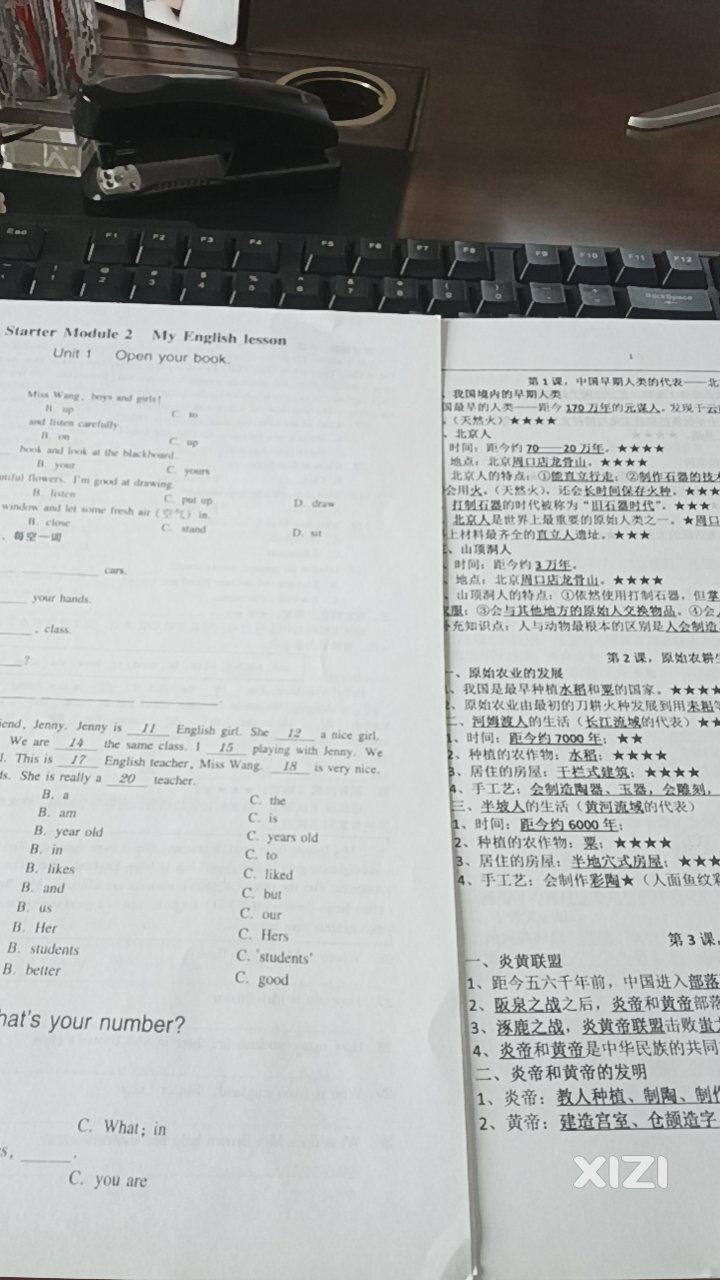 Esc F1 F2 F3 F4 F5 F6 F7 F8 F9 F10 F11 F12
! 1 @ 2 # 3 $ 4 % 5 ^ 6 & 7 * 8 ( 9 ) 0 - + = BackSpace
Starter Module 2 My English lesson
Unit 1 Open your book.
Miss Wang, boys and girls!
B. up C. to
and listen carefully.
B. on C. up
book and look at the blackboard.
B. your C. yours
flowers. I'm good at drawing.
B. listen C. put up D. draw
window and let some fresh air (空气) in.
B. close C. stand D. sit
，每空一词
cars.
your hands.
, class.
?
Jenny. Jenny is 11 English girl. She 12 a nice girl.
We are 14 the same class. I 15 playing with Jenny. We
This is 17 English teacher, Miss Wang. 18 is very nice.
She is really a 20 teacher.
B. a C. the
B. am C. is
B. year old C. years old
B. in C. to
B. likes C. liked
B. and C. but
B. us C. our
B. Her C. Hers
B. students C. students'
B. better C. good
hat's your number?
C. What; in
s,
C. you are
1
第 1 课，中国早期人类的代表——北
、我国境内的早期人类
国最早的人类——距今 170 万年的元谋人，发现于云
（天然火）★★★★
、北京人
时间：距今约 70——20 万年。★★★★
地点：北京周口店龙骨山。★★★★
北京人的特点：①能直立行走；②制作石器的技术
会用火。（天然火），还会长时间保存火种。★★★
打制石器的时代被称为“旧石器时代”。★★★
北京人是世界上最重要的原始人类之一。★周口
上材料最齐全的直立人遗址。★★★
、山顶洞人
时间：距今约 3 万年。
地点：北京周口店龙骨山。★★★★
山顶洞人的特点：①依然使用打制石器，但掌
服；③会与其他地方的原始人交换物品。④会人
充知识点：人与动物最根本的区别是人会制造
第 2 课，原始农耕生
一、原始农业的发展
、我国是最早种植水稻和粟的国家。★★★★
、原始农业由最初的刀耕火种发展到用耒耜
二、河姆渡人的生活（长江流域的代表）★★
1、时间：距今约 7000 年；★★
2、种植的农作物：水稻；★★★★
3、居住的房屋：干栏式建筑；★★★★
4、手工艺：会制造陶器、玉器，会雕刻，
三、半坡人的生活（黄河流域的代表）
1、时间：距今约 6000 年；
2、种植的农作物：粟；★★★★
3、居住的房屋：半地穴式房屋；★★★
4、手工艺：会制作彩陶★（人面鱼纹彩
第 3 课，
一、炎黄联盟
1、距今五六千年前，中国进入部落
2、阪泉之战之后，炎帝和黄帝部落
3、涿鹿之战，炎黄帝联盟击败蚩尤
4、炎帝和黄帝是中华民族的共同
二、炎帝和黄帝的发明
1、炎帝：教人种植、制陶、制作
2、黄帝：建造宫室、仓颉造字
XIZI